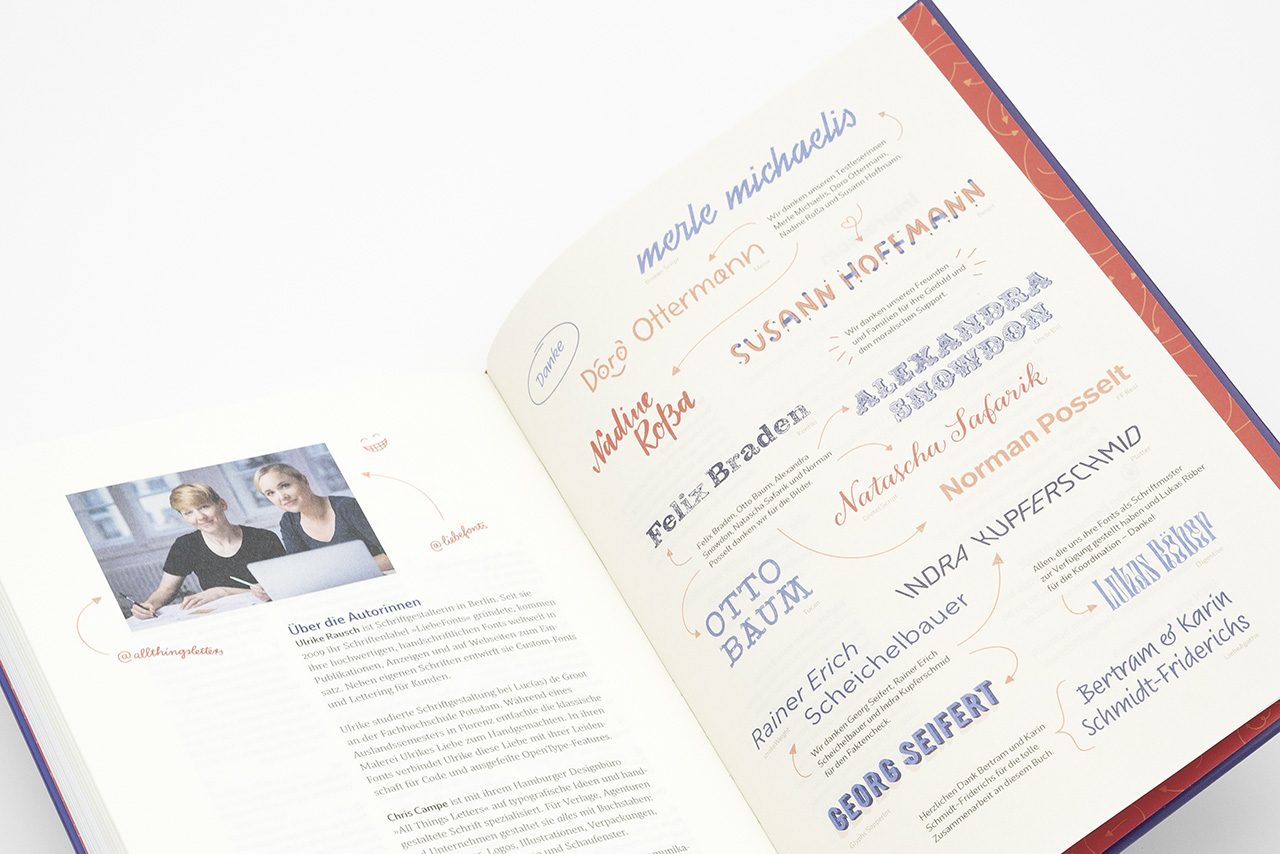 @liebefonts
@allthingsletters
Über die Autorinnen
Ulrike Rausch ist Schriftgestalterin in Berlin. Seit sie
2009 ihr Schriftenlabel »LiebeFonts« gründete, kommen
ihre hochwertigen, handschriftlichen Fonts weltweit in
Publikationen, Anzeigen und auf Webseiten zum Ein-
satz. Neben eigenen Schriften entwirft sie Custom-Fonts
und Lettering für Kunden.
Ulrike studierte Schriftgestaltung bei Luc(as) de Groot
an der Fachhochschule Potsdam. Während eines
Auslandssemesters in Florenz entfachte die klassische
Malerei Ulrikes Liebe zum Handgemachten. In ihren
Fonts verbindet Ulrike diese Liebe mit ihrer Leiden-
schaft für Code und ausgefeilte OpenType-Features.
Chris Campe ist mit ihrem Hamburger Designbüro
»All Things Letters« auf typografische Ideen und hand-
gestaltete Schrift spezialisiert. Für Verlage, Agenturen
und Unternehmen gestaltet sie alles mit Buchstaben:
Logos, Illustrationen, Verpackungen,
und Schaufenster.
Danke
merle michaelis
Wir danken unseren Testleserinnen
Merle Michaelis, Doro Ottermann,
Nadine Roßa und Susann Hoffmann.
Doro Ottermann
SUSANN HOFFMANN
Nadine
Roßa
Wir danken unseren Freunden
und Familien für ihre Geduld und
den moralischen Support.
ALEXANDRA
SNOWDON
Felix Braden
Felix Braden, Otto Baum, Alexandra
Snowdon, Natascha Safarik und Norman
Posselt danken wir für die Bilder.
Natascha Safarik
Norman Posselt
OTTO
BAUM
INDRA KUPFERSCHMID
Allen, die uns ihre Fonts als Schriftmuster
zur Verfügung gestellt haben und Lukas Röber
für die Koordination – Danke!
Lukas Röber
Rainer Erich
Scheichelbauer
Wir danken Georg Seifert, Rainer Erich
Scheichelbauer und Indra Kupferschmid
für den Faktencheck.
GEORG SEIFERT
Bertram & Karin
Schmidt-Friderichs
Herzlichen Dank Bertram und Karin
Schmidt-Friderichs für die tolle
Zusammenarbeit an diesem Buch.